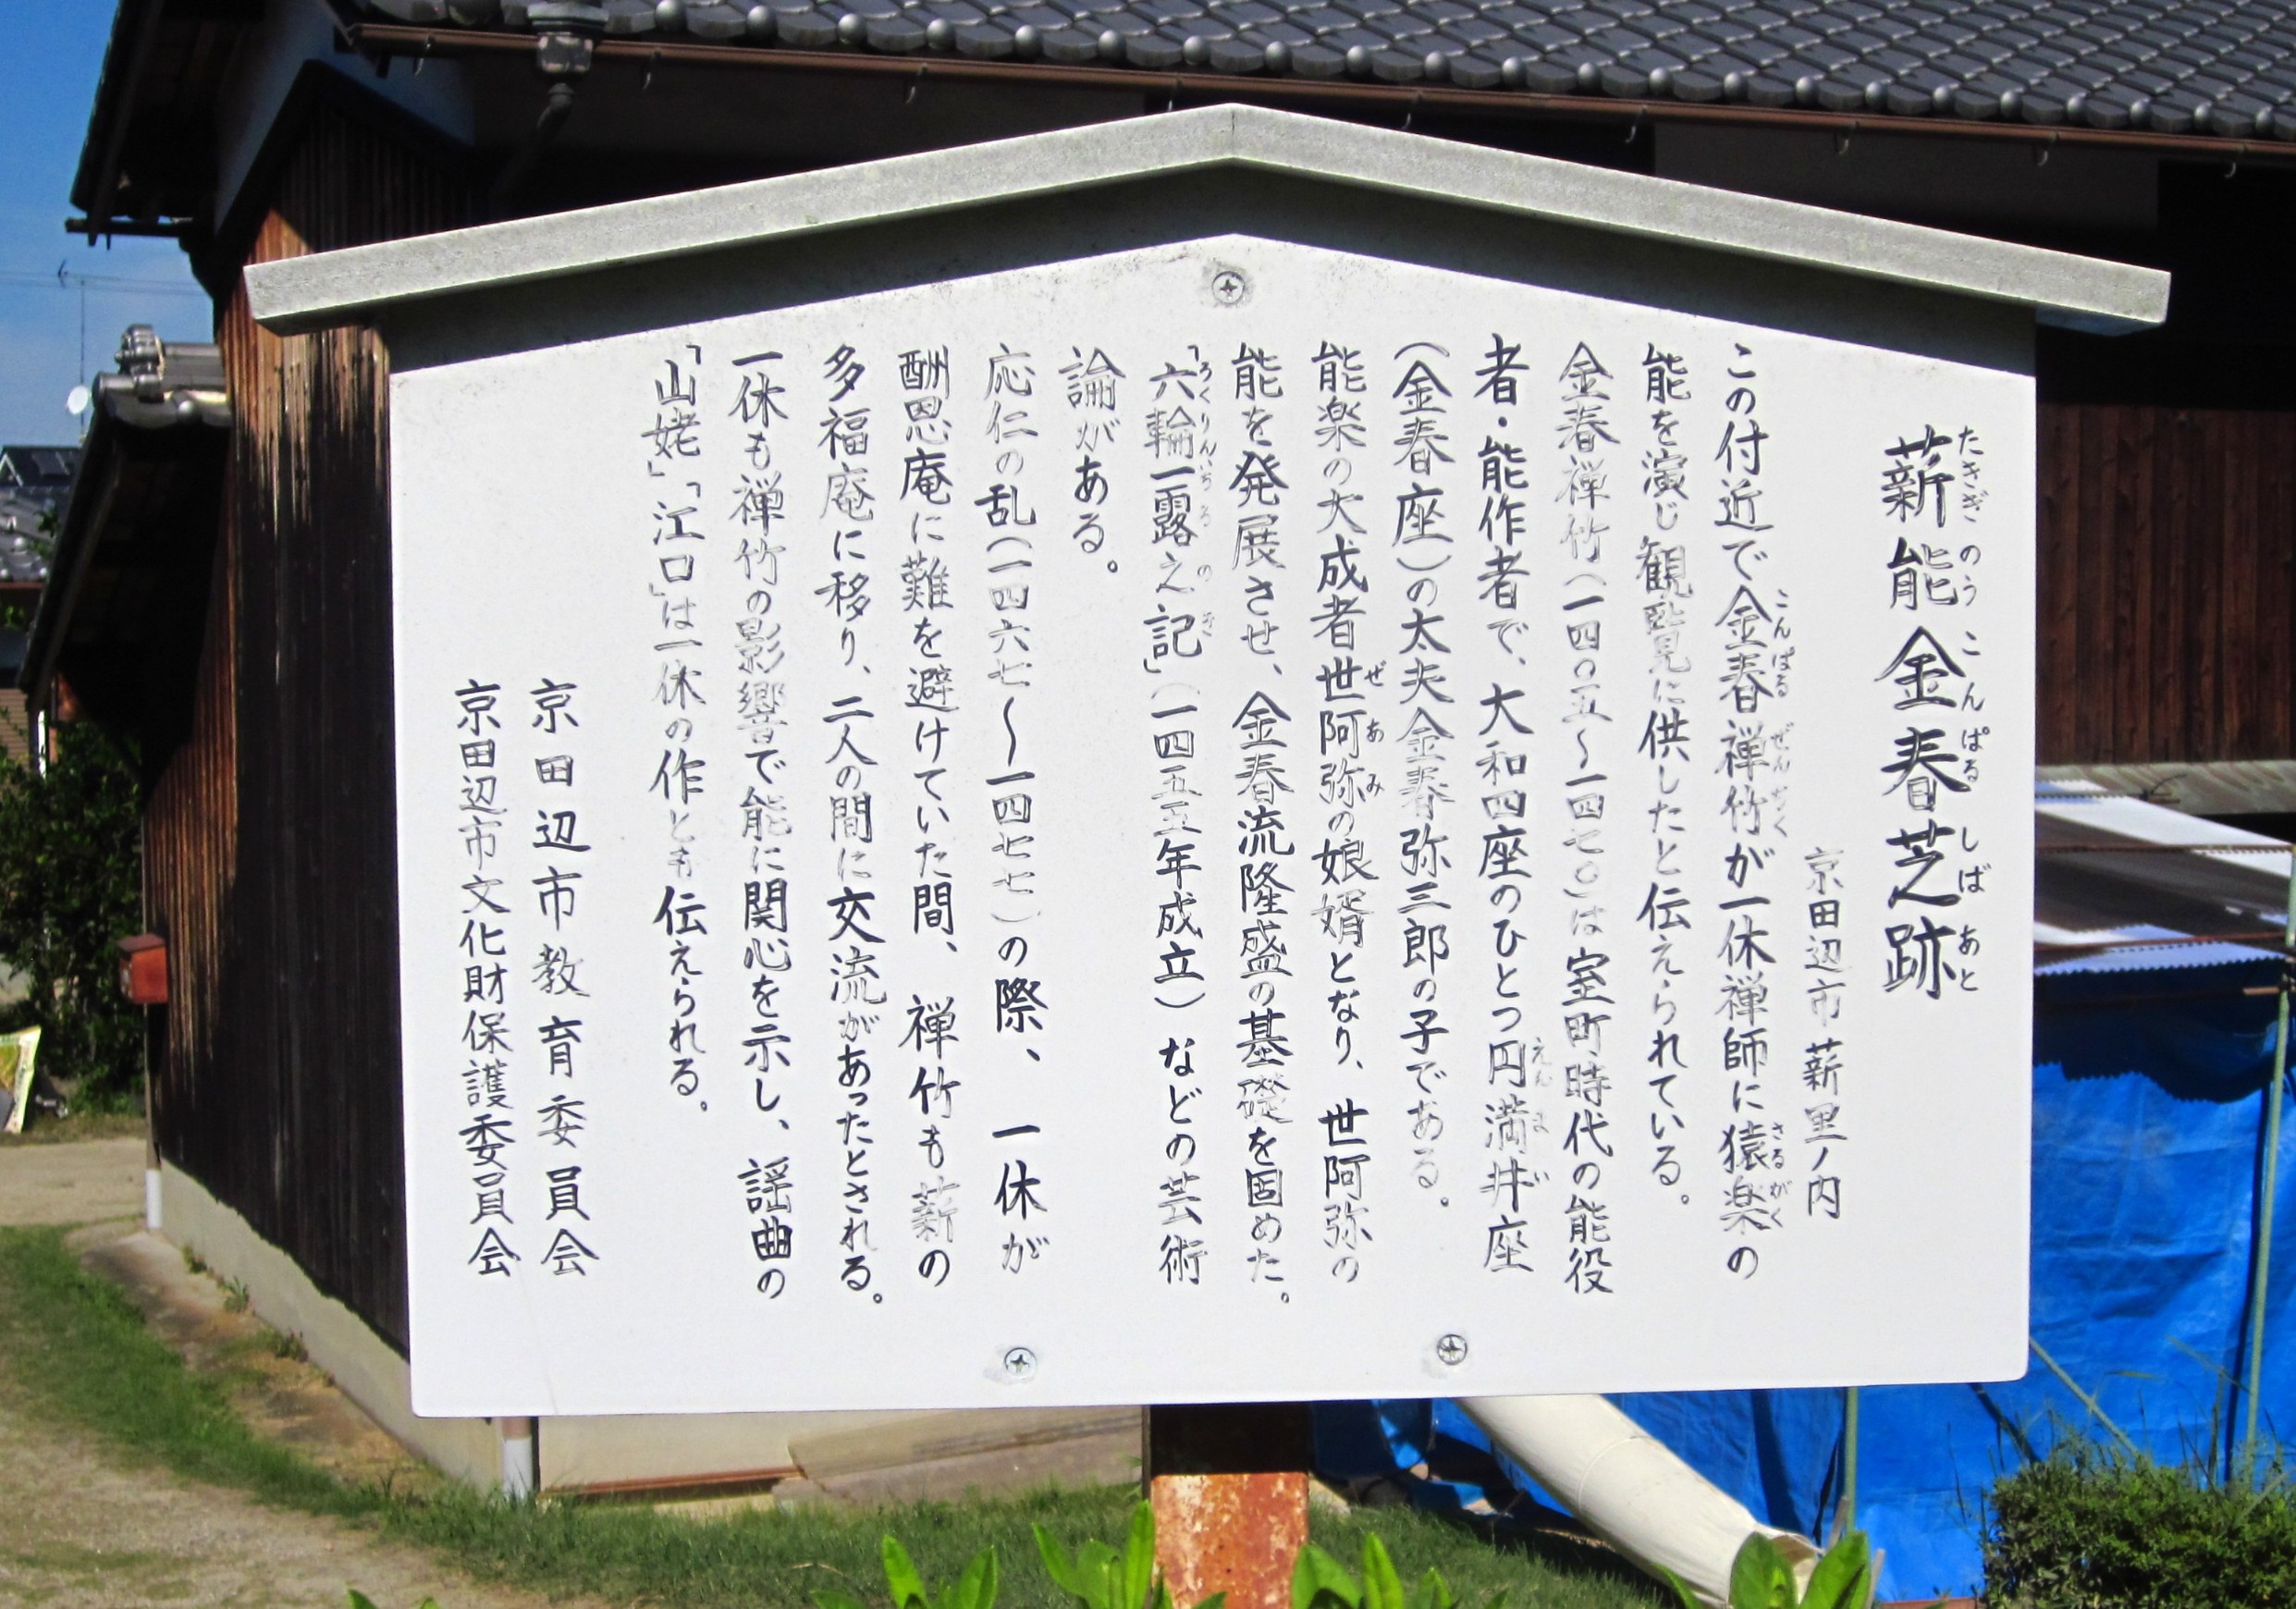 薪能金春芝跡
京田辺市薪里ノ内
この付近で金春禅竹が一休禅師に猿楽の
能を演じ観覧に供したと伝えられている。
金春禅竹(一四〇五~一四七〇)は室町時代の能役
者・能作者で、大和四座のひとつ円満井座
(金春座)の太夫金春弥三郎の子である。
能楽の大成者世阿弥の娘婿となり、世阿弥の
能を発展させ、金春流隆盛の基礎を固めた。
「六輪一露之記」(一四五五年成立)などの芸術
論がある。
応仁の乱(一四六七~一四七七)の際、一休が
酬恩庵に難を避けていた間、禅竹も薪の
多福庵に移り、二人の間に交流があったとされる。
一休も禅竹の影響で能に関心を示し、謡曲の
「山姥」「江口」は一休の作とも伝えられる。
京田辺市教育委員会
京田辺市文化財保護委員会
たきぎのうこんぱるしばあと
こんぱるぜんちく
さるがく
えんまい
ぜあみ
ろくりんいちろのき